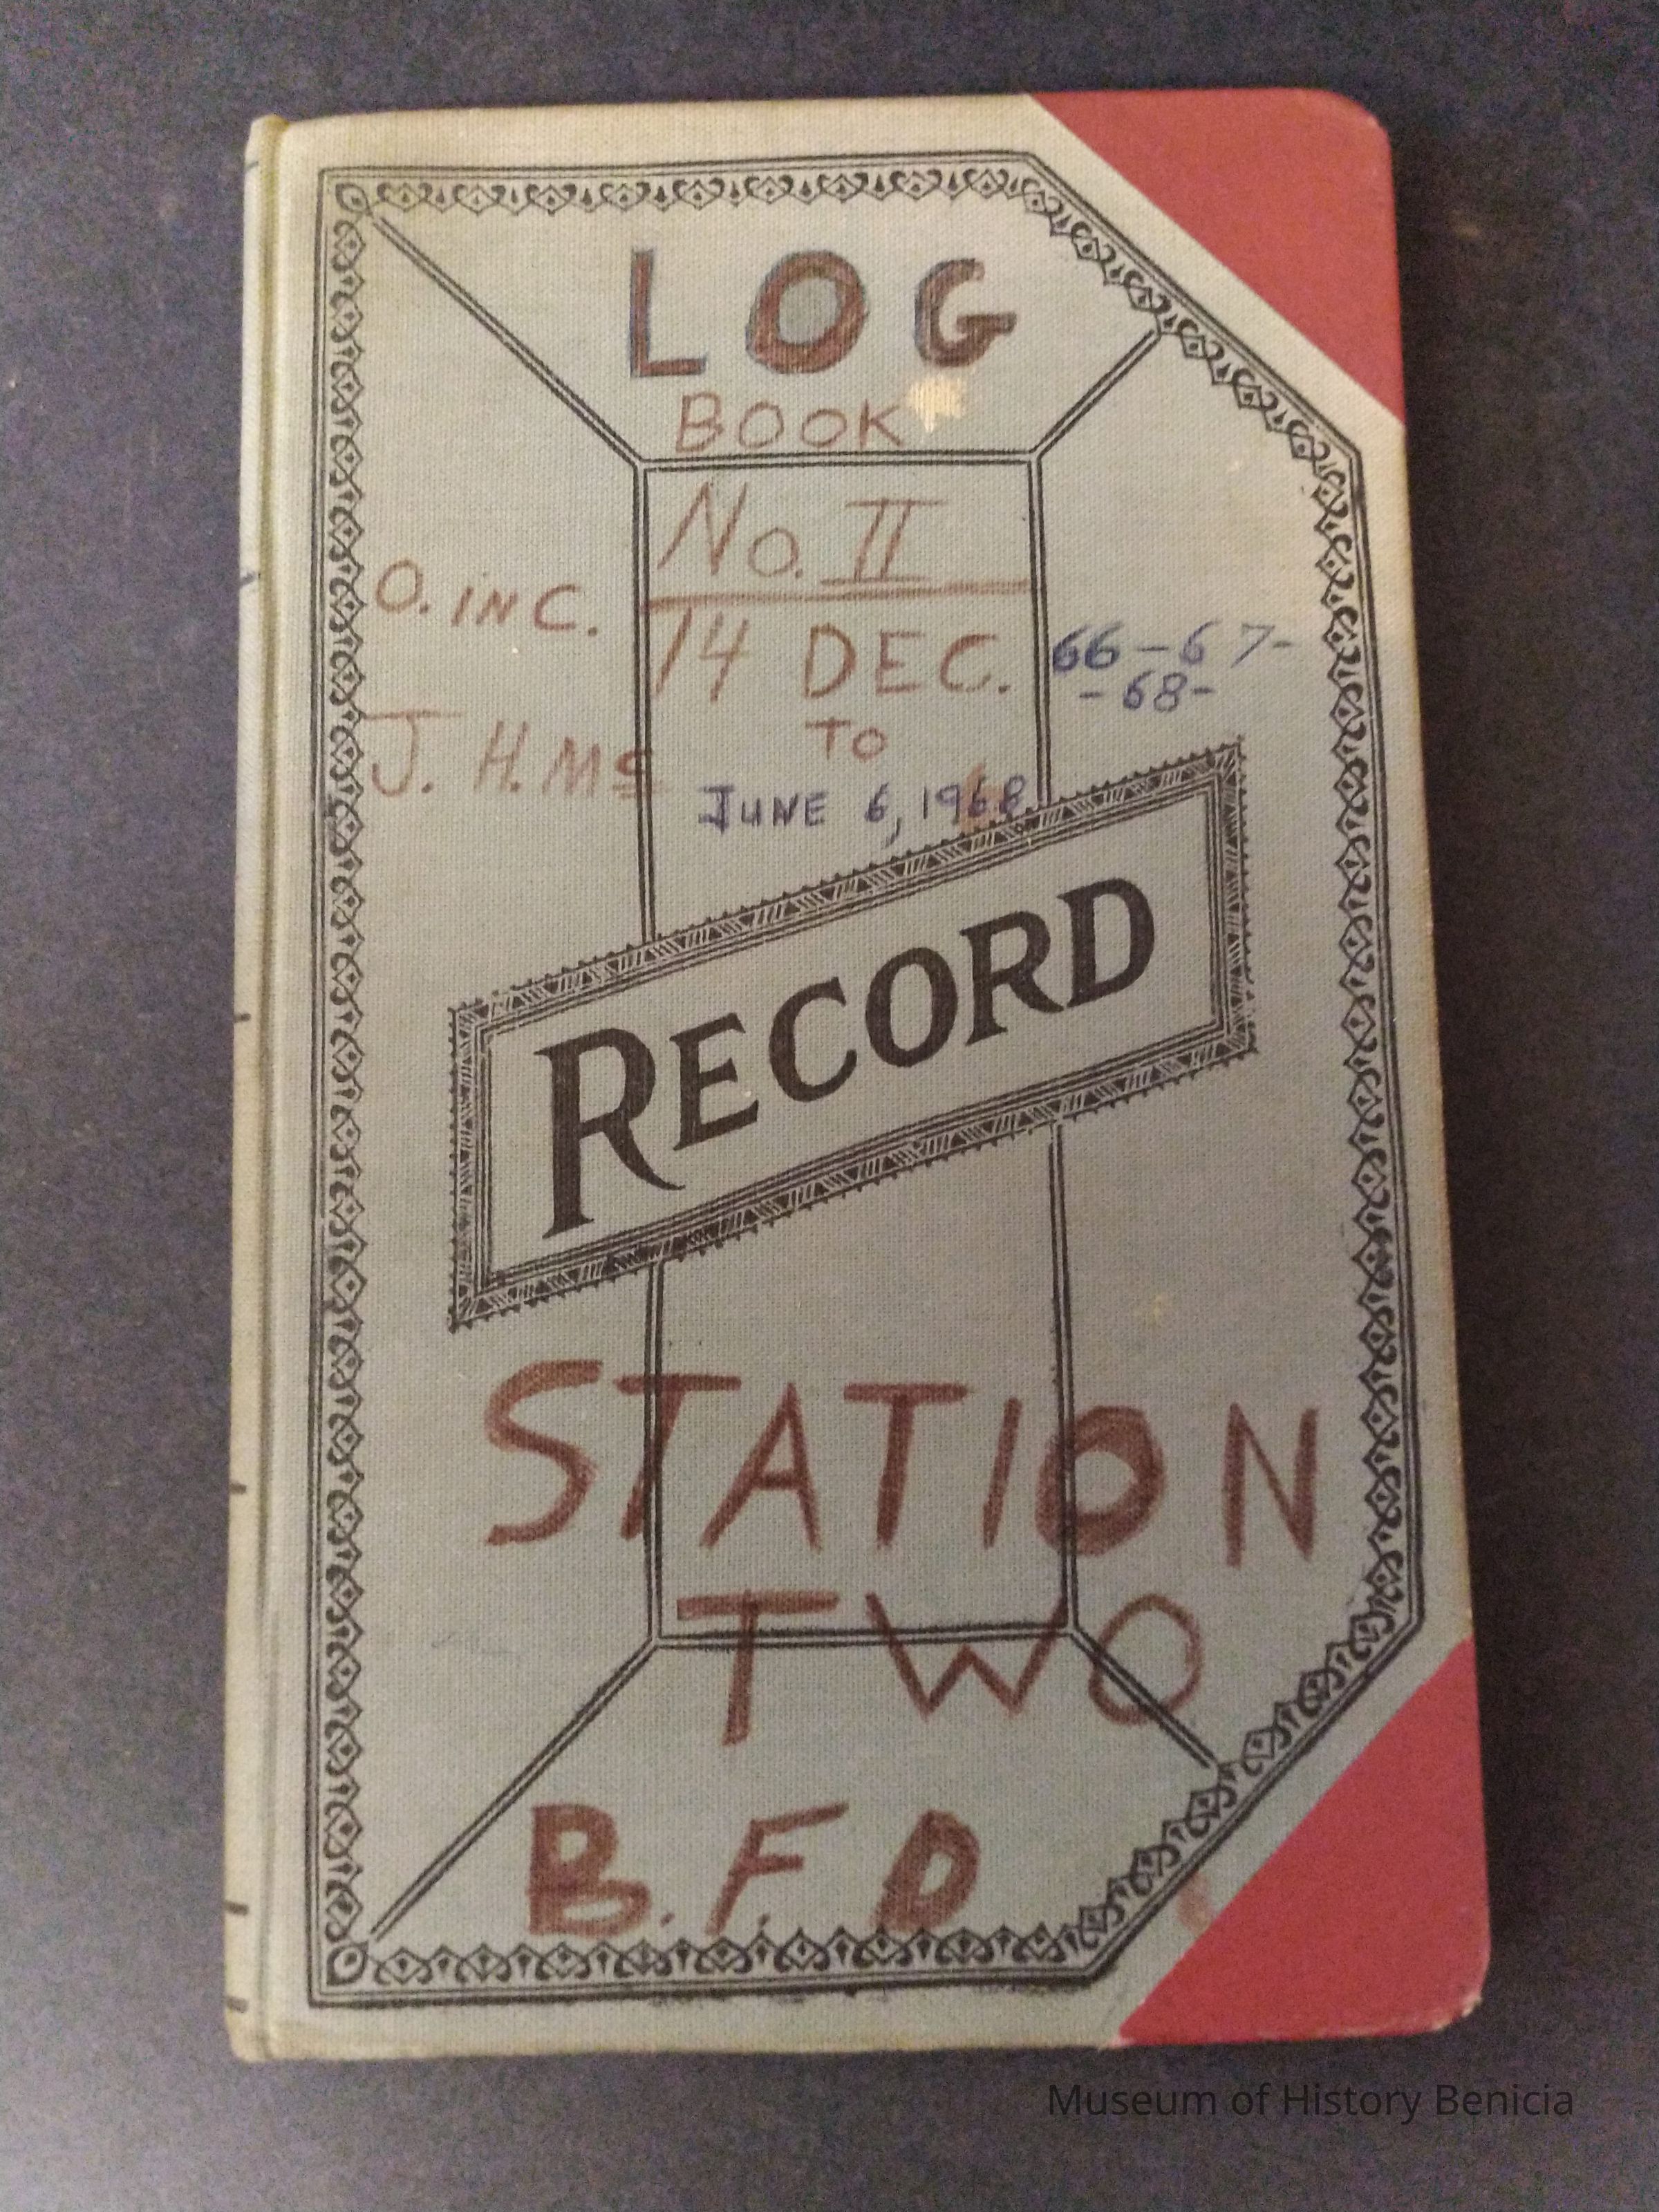 LOG
BOOK
No. II
O. IN C.
14 DEC.
66-67-
-68-
TO
J. H. Mc
JUNE 6, 1968
RECORD
STATION
TWO
B.F.D
Museum of History Benicia